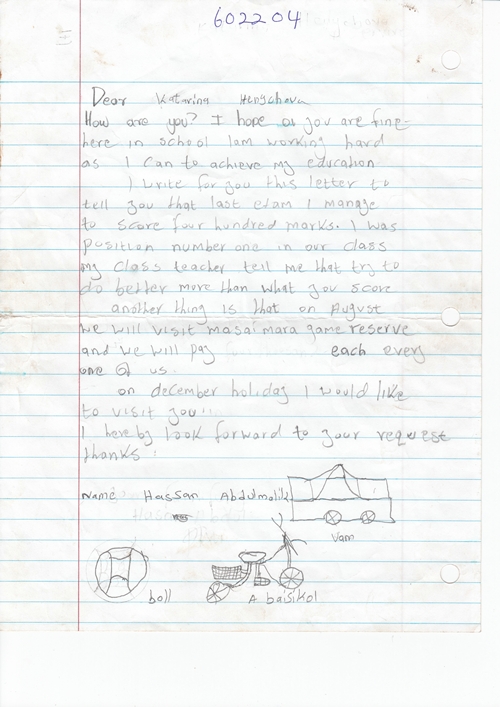 6022204
Dear Katarina
How are you? I hope as you are fine-
here in school Iam working hard
as I can to achieve my education
I write for you this letter to
tell you that last exam I manage
to score four hundred marks. I was
position number one in our class
my class teacher tell me that try to
do better more than what you score
another thing is that on August
we will visit masaimara game reserve
and we will pay each every
one @ us.
on december holiday I would like
to visit you!!
I hereby look forward to your request
thanks:
Name Hassan Abdulmalik
Vam
boll A baisikol